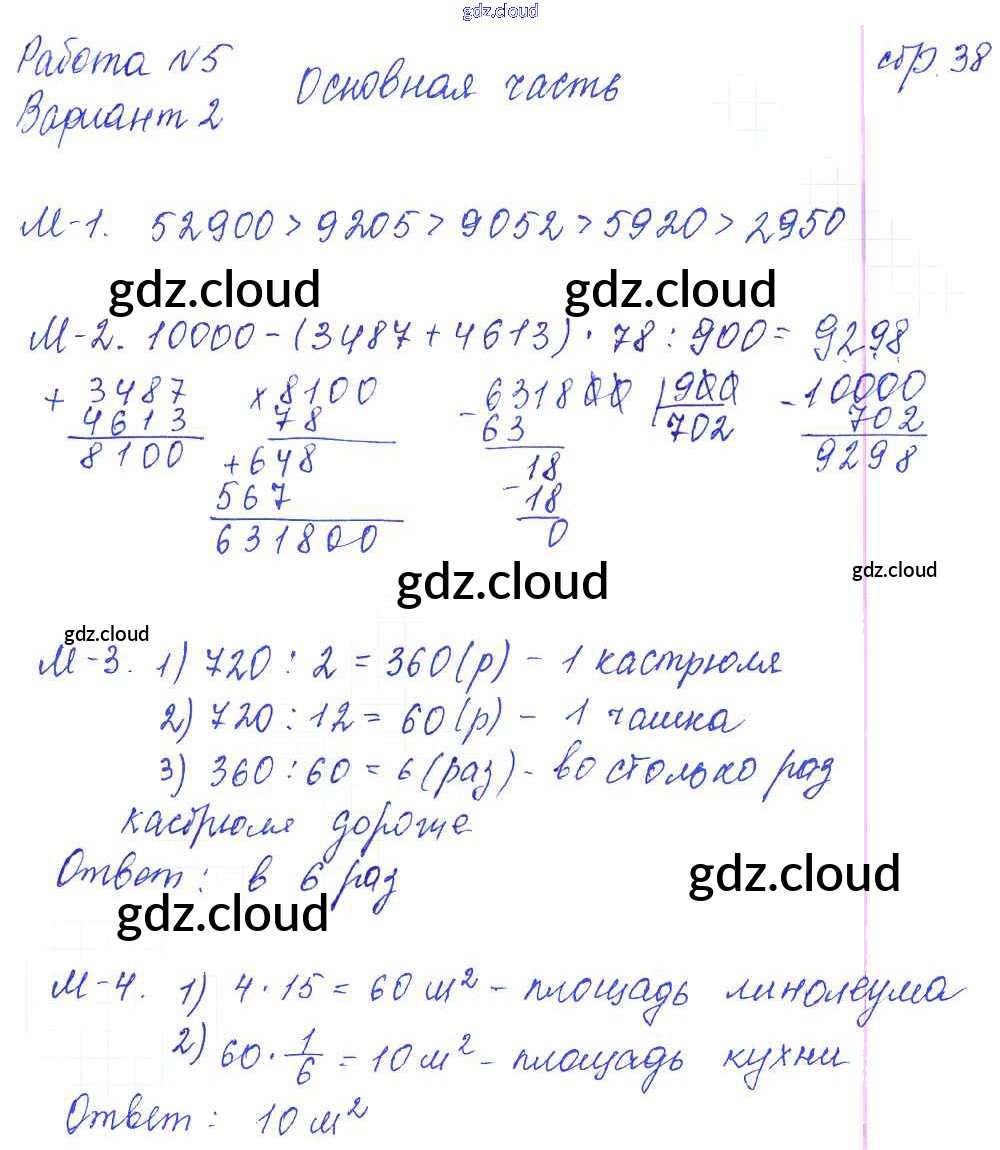 gdz.cloud
Работа №5
Основная часть
стр. 38
Вариант 2
М-1. 52900 > 9205 > 9052 > 5920 > 2950
gdz.cloud gdz.cloud
М-2. 10000 - (3487 + 4613) · 78 : 900 = 9298
+ 3487 × 8100 - 631800 | 900 - 10000
4613 78 63 702 702
8100 + 648 18 9298
567 - 18
631800 0
gdz.cloud
gdz.cloud
gdz.cloud
М-3. 1) 720 : 2 = 360 (р) - 1 кастрюля
2) 720 : 12 = 60 (р) - 1 чашка
3) 360 : 60 = 6 (раз) - во столько раз
кастрюля дороже
Ответ: в 6 раз
gdz.cloud
gdz.cloud
М-4. 1) 4 · 15 = 60 м² - площадь линолеума
2) 60 · 1/6 = 10 м² - площадь кухни
Ответ: 10 м²